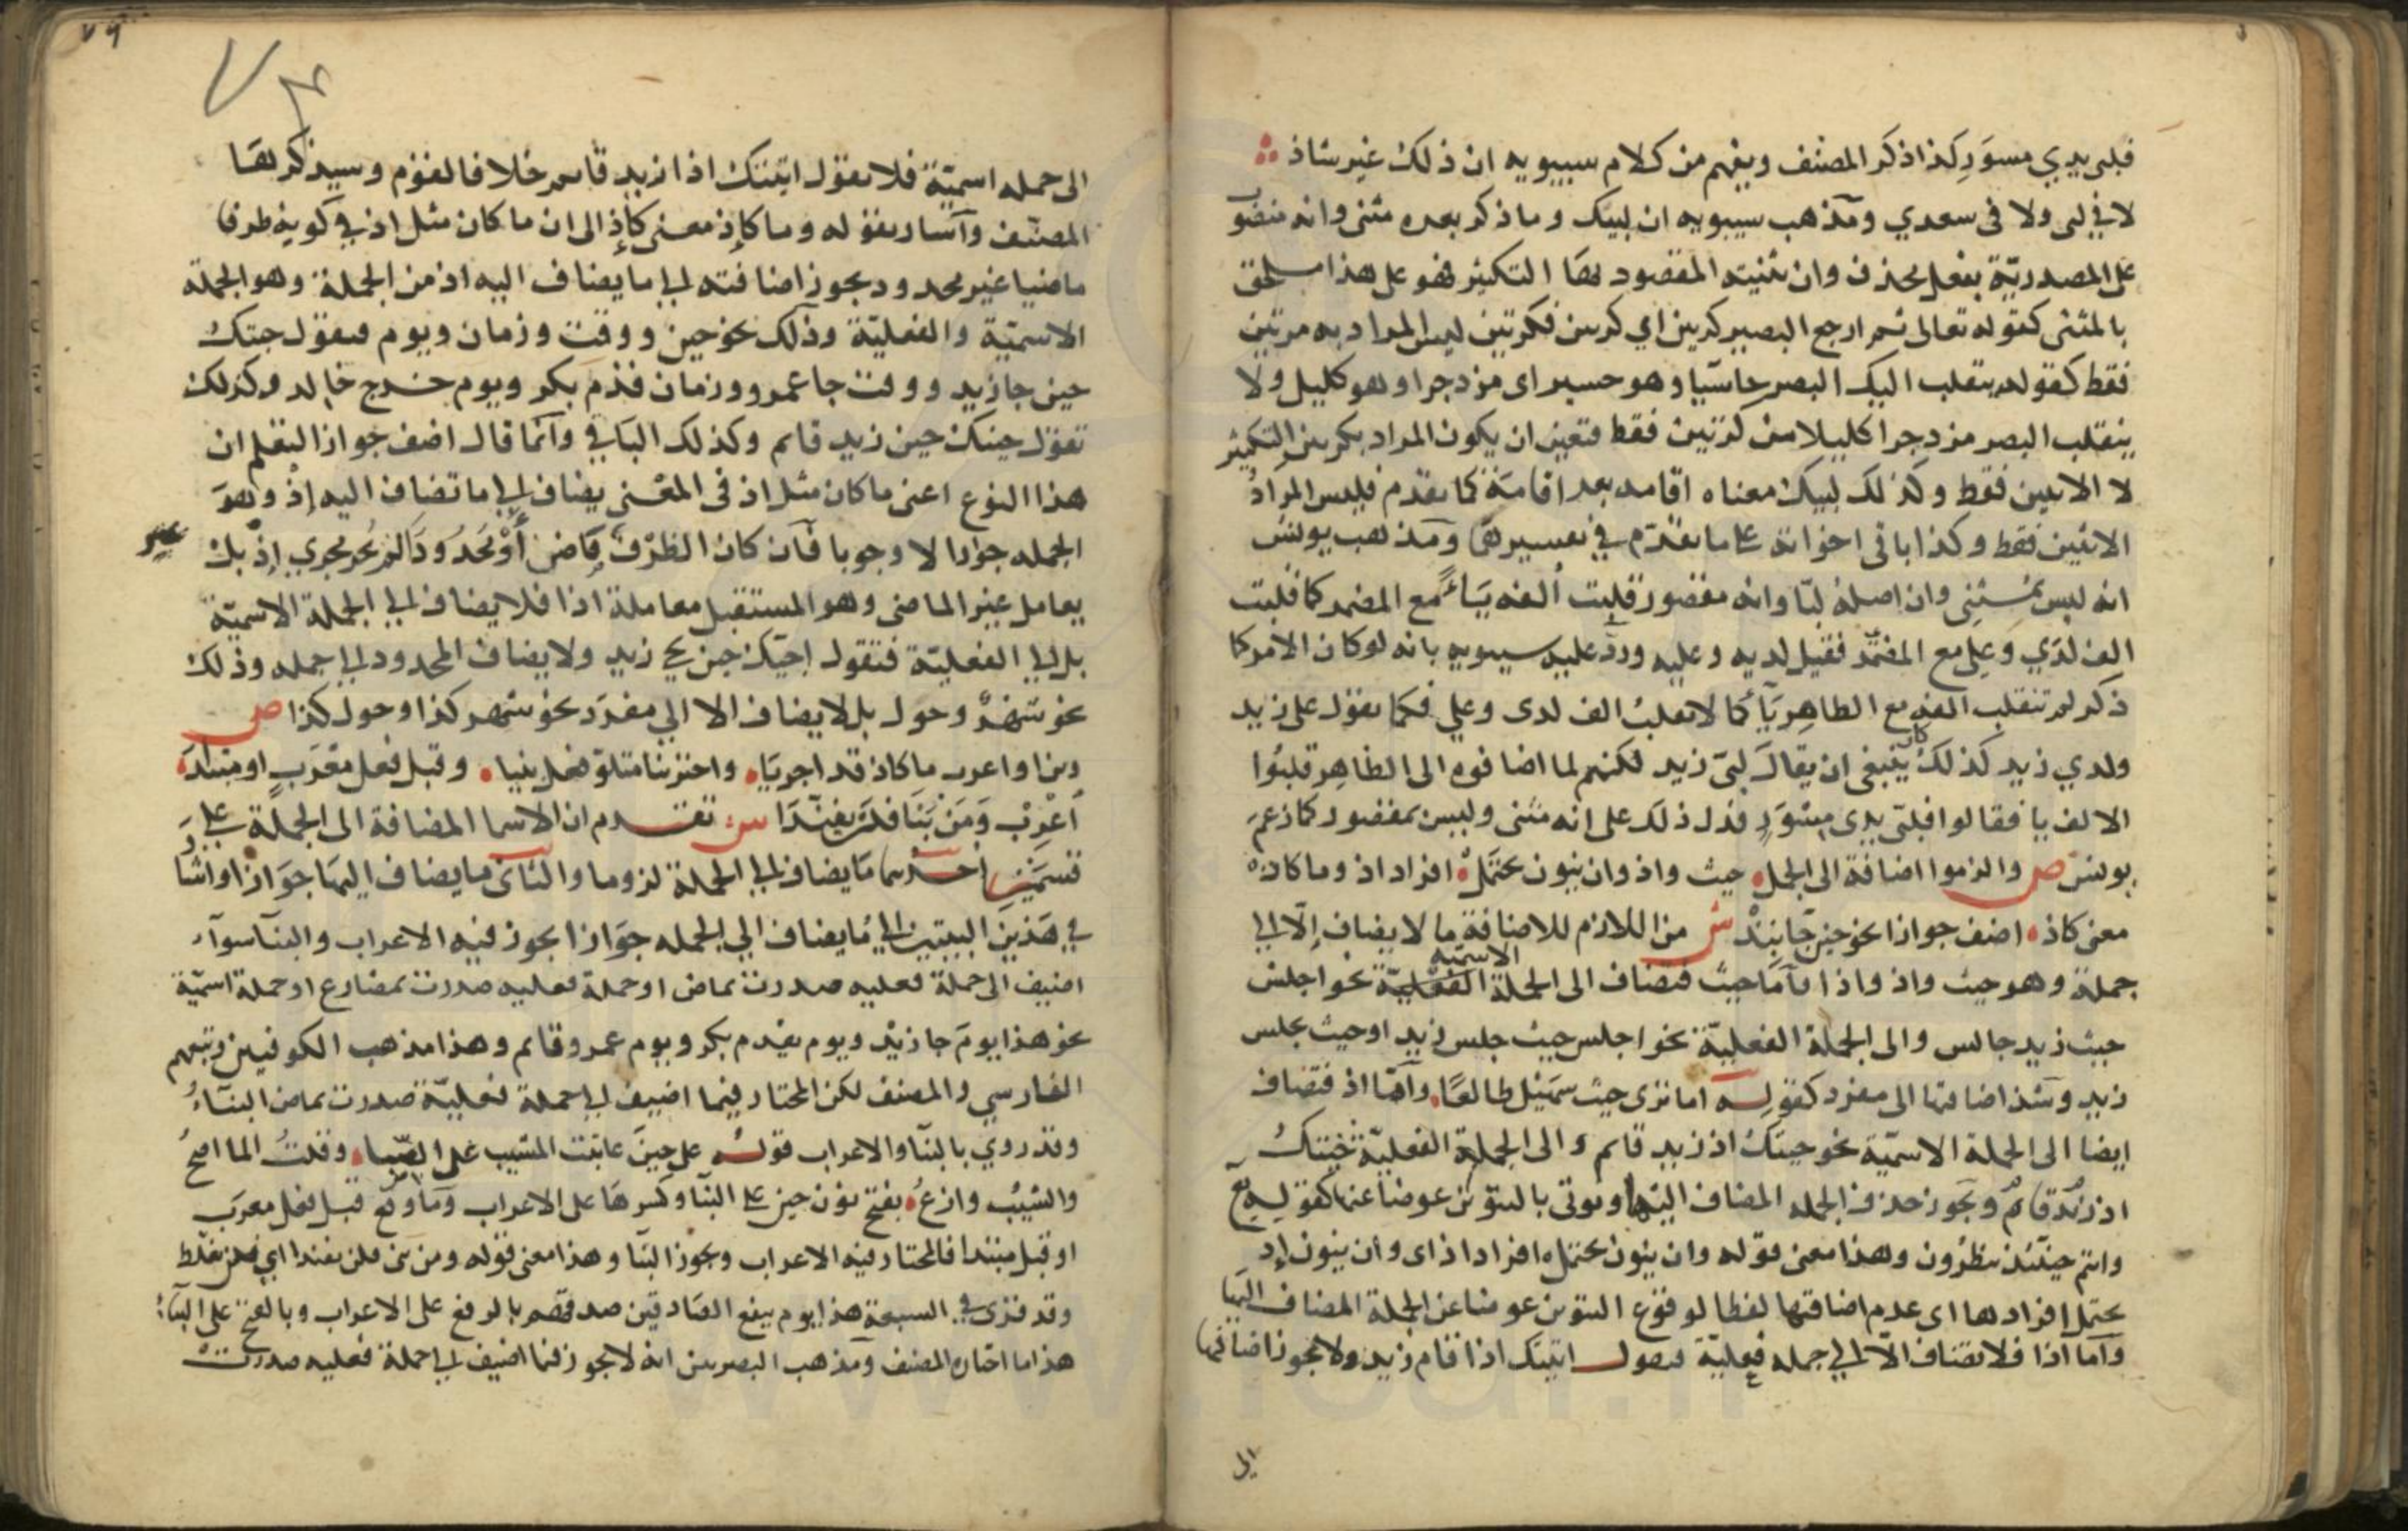 فلبى يدي مسور كذا ذكر المصنف ويفهم من كلام سيبويه ان ذلك غير شاذ
لا في لبى ولا في سعدي ومذهب سيبويه ان لبيك وما ذكر بعده مثنى وانه منصوب
على المصدرية بفعل محذوف وان تثنيته المقصود بها التكثير فهو على هذا ملحق
بالمثنى كقوله تعالى ثم ارجع البصر كرتين اي كرتين فكرتين ليس المراد به مرتين
فقط كقوله ينقلب اليك البصر خاسيا وهو حسير اى مزدجرا وهو كليل ولا
ينقلب البصر مزدجرا كليلا من كرتين فقط فتعين ان يكون المراد بكرتين التكثير
لا الاثنين فقط وكذلك لبيك معناه اقامه بعد اقامة كما تقدم فليس المراد
الاثنين فقط وكذا باقى اخواته على ما تقدم في تفسيرها ومذهب يونس
انه ليس بمثنى وان اصله لبا وانه مقصور قلبت ألفه ياءً مع المضمر كما قلبت
الف لدي وعلى مع المضمر فقيل لديه وعليه ورد عليه سيبويه بانه لو كان الامر كما
ذكر لم تنقلب الفه مع الظاهر ياء كما لا تقلب الف لدى وعلى فكما تقول على زيد
ولدي زيد كذلك كان ينبغى ان يقال لبى زيد لكنهم لما اضافوه الى الظاهر قلبوا
الالف يا فقالوا فلبى يدى مسور فدل ذلك على انه مثنى وليس بمقصور كما زعم
يونس ص والزموا اضافة الى الجمل حيث واذ وان ينون يحتمل افراد اذ وما كاذ
معنى كاذ اضف جوازا نحو حين جا نبذ ش من اللازم للاضافة ما لا يضاف إلا الى
جملة وهو حيث واذ واذا فأما حيث فتضاف الى الجملة الاسمية نحو اجلس
حيث زيد جالس والى الجملة الفعلية نحو اجلس حيث جلس زيد او حيث يجلس
زيد وشذ اضافتها الى مفرد كقوله اما ترى حيث سهيل طالعًا وأما اذ فتضاف
ايضا الى الجملة الاسمية نحو جيتك اذ زيد قايم والى الجملة الفعلية نحو جيتك
اذ زيد قايم ويجوز حذف الجمله المضاف اليها ويوتى بالتنوين عوضا عنها كقوله تع
وانتم حينئذ تنظرون وهذا معنى قوله وان ينون يحتمل افراد اذ اى وأن ينون إذ
يحتمل افرادها اى عدم اضافتها لفظا لوقوع التنوين عوضا عن الجملة المضاف اليها
وأما اذا فلا تضاف الا الى جمله فعلية فيقول اتيتك اذا قام زيد ولا يجوز اضافتها
الى
٧٩
الى جمله اسمية فلا تقول اتيتك اذا زيد قايم خلافا لقوم وسيذكرها
المصنف وأشار بقوله وما كإذ معنى كإذ الى ان ما كان مثل اذ في كونه ظرفا
ماضيا غير محدود يجوز اضافته الى ما يضاف اليه اذ من الجملة وهو الجملة
الاسمية والفعلية وذلك نحو حين ووقت وزمان ويوم فيقول جيتك
حين جا زيد ووقت جا عمرو وزمان قدم بكر ويوم خرج خالد وكذلك
تقول جيتك حين زيد قايم وكذلك الباقي وانما قال اضف جوازا ليعلم ان
هذا النوع اعنى ما كان مثل اذ فى المعنى يضاف الى ما تضاف اليه إذ وهو
الجمله جوازا لا وجوبا فان كان الظرف غير ماض أو محدودا لم يجر مجرى إذ بل
يعامل غير الماضى وهو المستقبل معاملة اذا فلا يضاف الى الجملة الاسمية
بل الى الفعلية فتقول اجيئك حين يجي زيد ولا يضاف المحدود الى جمله وذلك
نحو شهر وحول بل لا يضاف الا الى مفرد نحو شهر كذا وحول كذا ص
وبن او اعرب ما كاذ قد اجريا واختر بنا متلو فعل بنيا وقبل فعل معرب او مبتدا
اعرب ومن بنا فلن يفندا ش تقدم ان الاسما المضافة الى الجملة على
قسمين احدهما ما يضاف الى الجملة لزوما والثانى ما يضاف اليها جوازا واشار
في هذين البيتين الى ما يضاف الى الجمله جوازا يجوز فيه الاعراب والبنا سوآء
اضيف الى جملة فعليه صدرت بماض او جملة فعليه صدرت بمضارع او جملة اسمية
نحو هذا يوم جا زيد ويوم يقدم بكر ويوم عمرو قايم وهذا مذهب الكوفيين وتبعهم
الفارسي والمصنف لكن المختار فيما اضيف الى جملة فعلية صدرت بماض البناء
وقد روي بالبنا والاعراب قوله على حين عاتبت المشيب على الصبا وقلت الما اصح
والشيب وازع بفتح نون حين على البنا وكسرها على الاعراب وما وقع قبل فعل معرب
او قبل مبتدا فالمختار فيه الاعراب ويجوز البنا وهذا معنى قوله ومن بنى فلن يفندا اي فلن يغلط
وقد قرى في السبعة هذا يوم ينفع الصادقين صدقهم بالرفع على الاعراب وبالفتح على البناء
هذا ما اختاره المصنف ومذهب البصريين انه لا يجوز فيما اضيف الى جملة فعليه صدرت